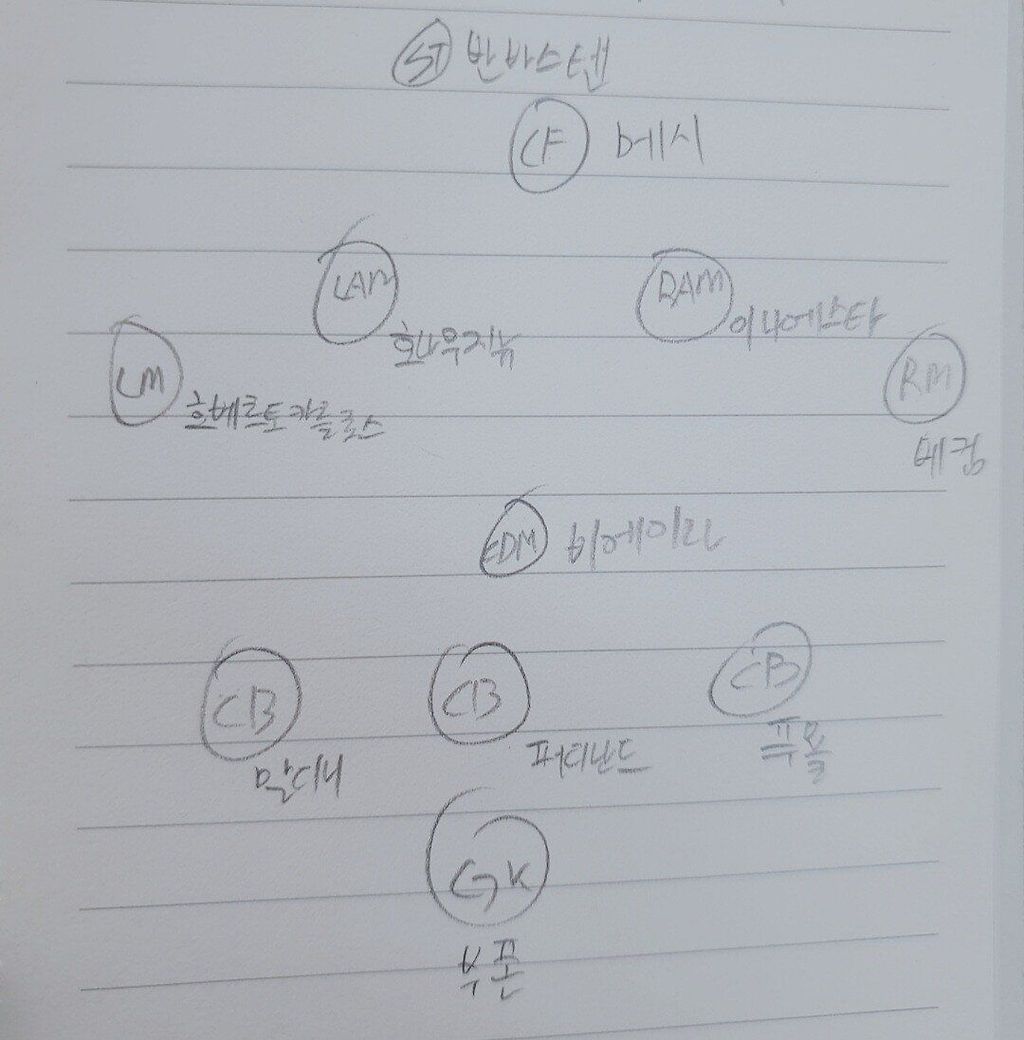 ST 반바스텐
CF 메시
LAM
RAM
호나우지뉴
이니에스타
LM
RM
호베르토 카를로스
베컴
CDM 비에이라
CB
CB
CB
말디니
퍼디난드
푸욜
GK
부폰